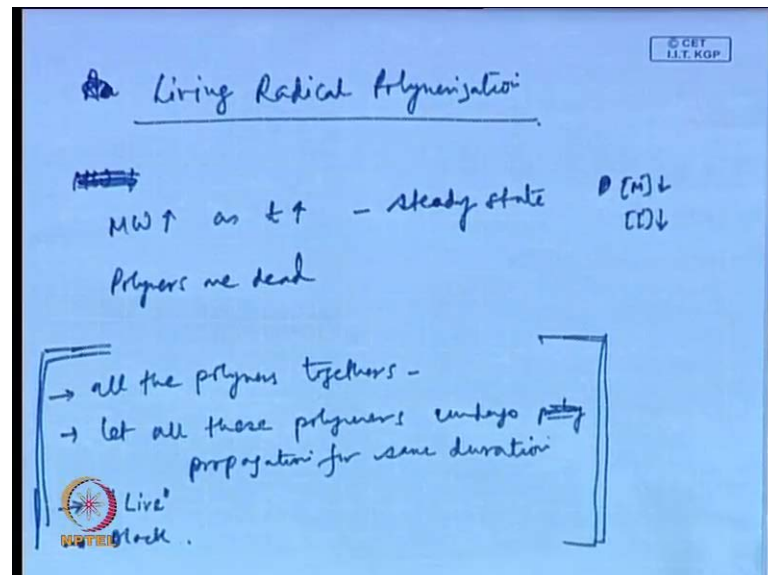 © CET
I.I.T. KGP
Living Radical Polymerization
MW ↑ as t ↑ - steady state [M]↓
[I]↓
Polymers are dead
→ all the polymers togethers -
→ let all these polymers undergo
propagation for same duration
→ "Live"
Block.
NPTEL